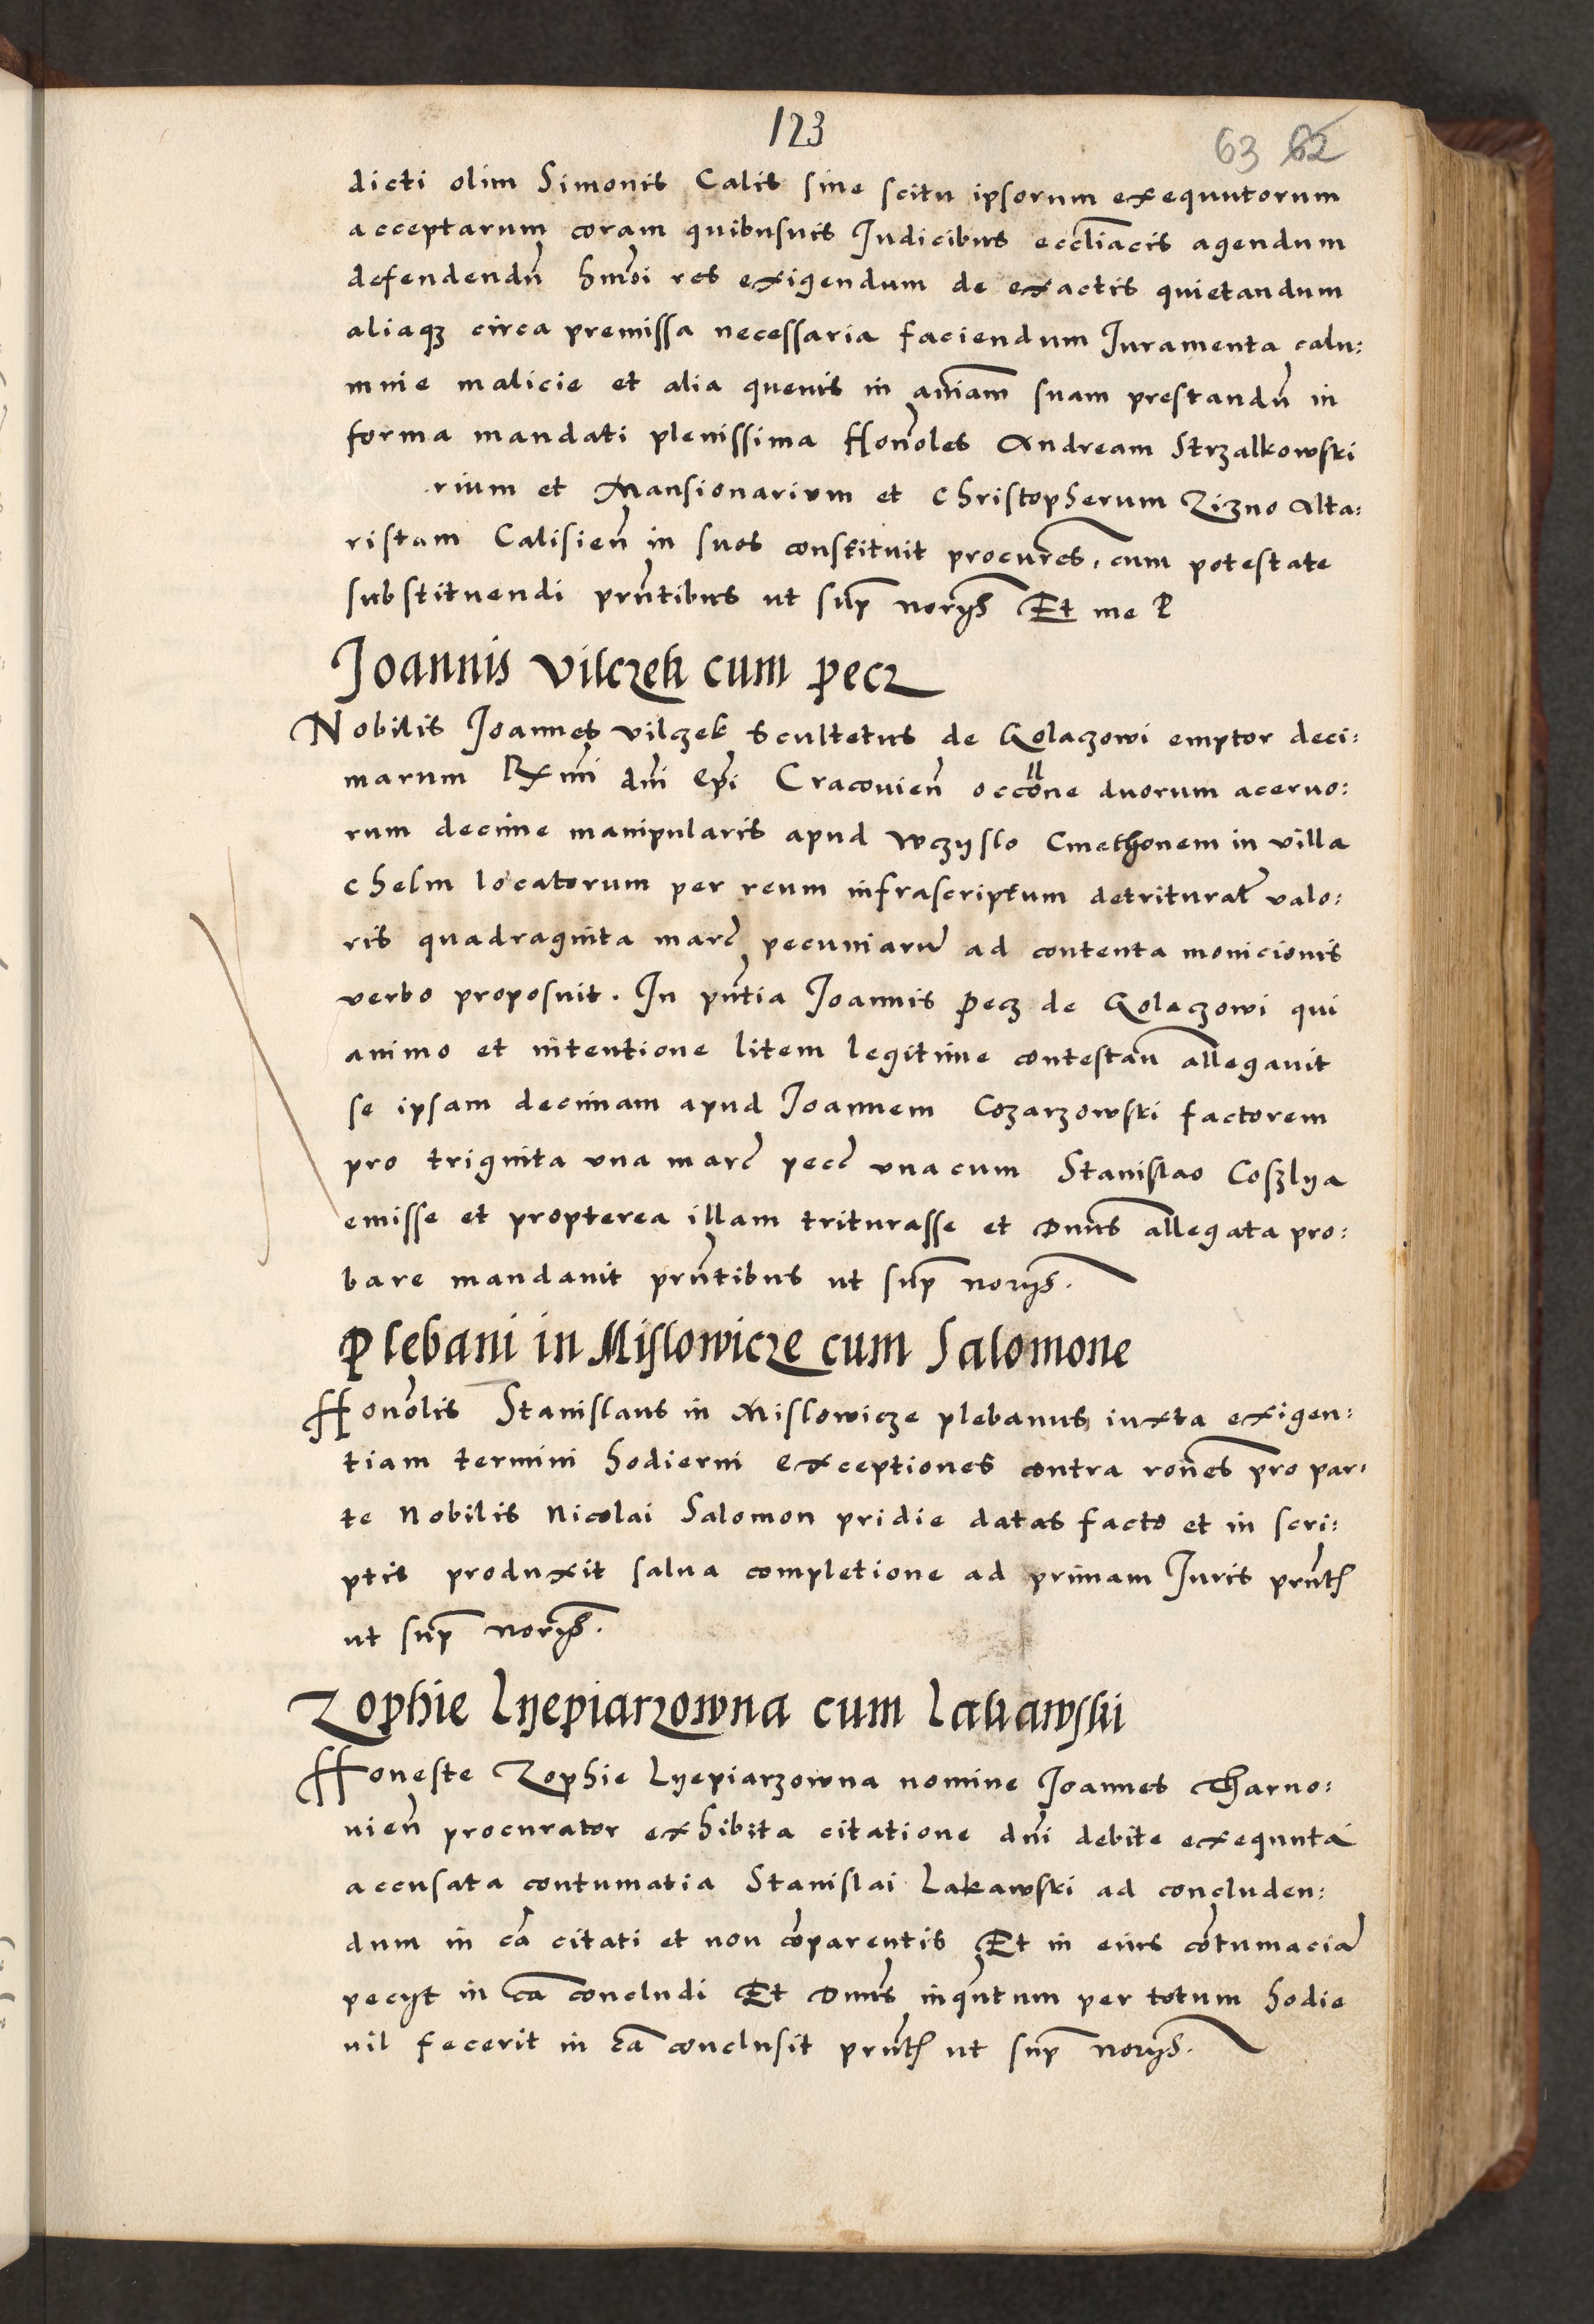 123
63 62
dicti olim Simonis Calis sine scitu ipsorum exequutorum
acceptarum coram quibusuis Iudicibus eccl̄iacis agendum
defendendū hm̄oi res exigendum de exactis quietandum
aliaqꝫ circa premissa necessaria faciendum Iuramenta calu:
mnie malicie et alia queuis in ani̅am suam prestandū in
forma mandati plenissima Hono̅les Andream Strzalkowski
rium et Mansionarium et Christopherum Zizno Alta:
ristam Calisien̄ in suos constituit procur̅es, cum potestate
substituendi prn̄tibus ut sup̅ norijs̅ Et me P
Joannis Vilczek cum pecz
Nobilis Joannes Vilczek Scultetus de Golaczowi emptor deci:
marum Rx̅mi dn̄i Ep̅i Cracouien̄ occo̅ne duorum aceruo:
rum decime manipularis apud Wczyslo Cmethonem in villa
Chelm locatorum per reum infrascriptum detriturat̅ valo:
ris quadraginta marc̅ pecuniaru̅ ad contenta monicionis
verbo proposuit. In pn̄tia Joannis Pecz de Golaczowi qui
animo et intentione litem legitime contestan̄ allegauit
se ipsam decimam apud Joannem Cozarzowski factorem
pro triginta una marc̅ pecc̅ una cum Stanislao Coszlya
emisse et propterea illam triturasse et Dnn̄s allegata pro:
bare mandauit prn̄tibus ut sup̅ norijs̅.
Plebani in Mislowicze cum Salomone
Hono̅lis Stanislaus in Mislowicze plebanus iuxta exigen:
tiam termini hodierni exceptiones contra ron̄es pro par:
te Nobilis Nicolai Salomon pridie datas facto et in scri:
ptis produxit salua completione ad primam Iuris prn̄t̅
ut sup̅ norijs̅.
Zophie Lyepiarzowna cum Lakawski
Honeste Zophie Lyepiarzowna nomine Joannes Tharno:
uien̄ procurator exhibita citatione dn̄i debite exequuta
accusata contumatia Stanislai Lakawski ad concluden:
dum in ca̅ citati et non co̅parentis Et in eius co̅tumacia̅
pecijt in ca̅ concludi Et Dnn̄s inqn̄tum per totum hodie
nil fecerit in ca̅ conclusit prn̄t̅ ut sup̅ norijs̅.